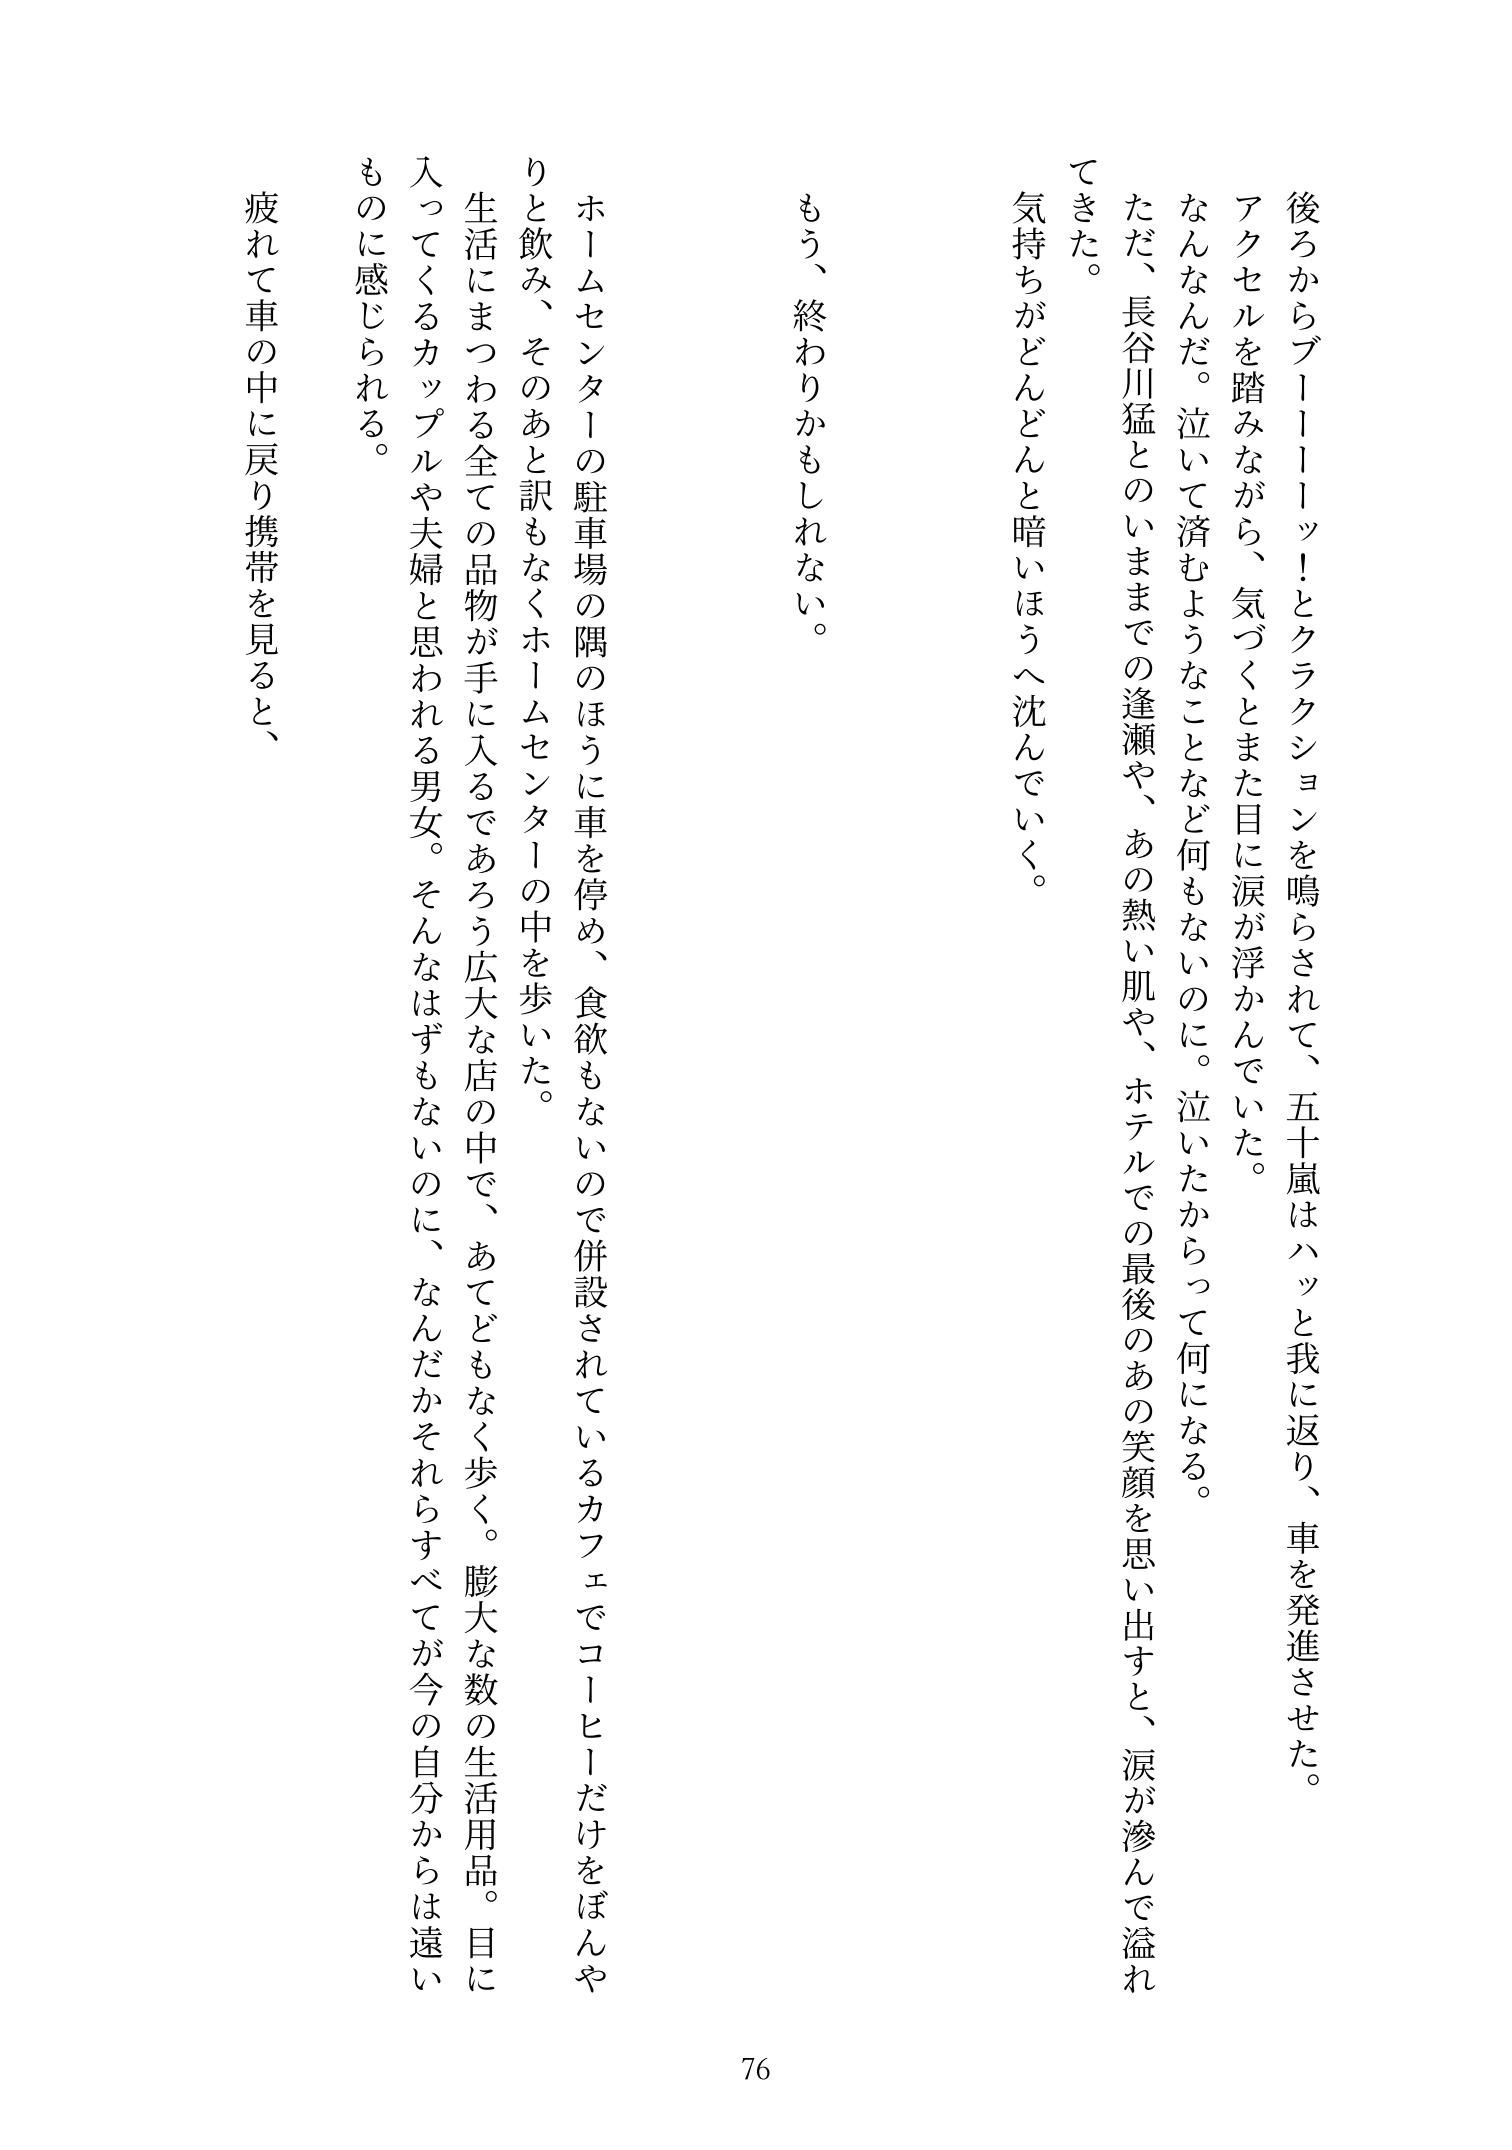 後ろからブーーーーッ！とクラクションを鳴らされて、五十嵐はハッと我に返り、車を発進させた。
アクセルを踏みながら、気づくとまた目に涙が浮かんでいた。
なんなんだ。泣いて済むようなことなど何もないのに。泣いたからって何になる。
ただ、長谷川猛とのいままでの逢瀬や、あの熱い肌や、ホテルでの最後のあの笑顔を思い出すと、涙が滲んで溢れ
てきた。
気持ちがどんどんと暗いほうへ沈んでいく。
もう、終わりかもしれない。
ホームセンターの駐車場の隅のほうに車を停め、食欲もないので併設されているカフェでコーヒーだけをぼんや
りと飲み、そのあと訳もなくホームセンターの中を歩いた。
生活にまつわる全ての品物が手に入るであろう広大な店の中で、あてどもなく歩く。膨大な数の生活用品。目に
入ってくるカップルや夫婦と思われる男女。そんなはずもないのに、なんだかそれらすべてが今の自分からは遠い
ものに感じられる。
疲れて車の中に戻り携帯を見ると、
76